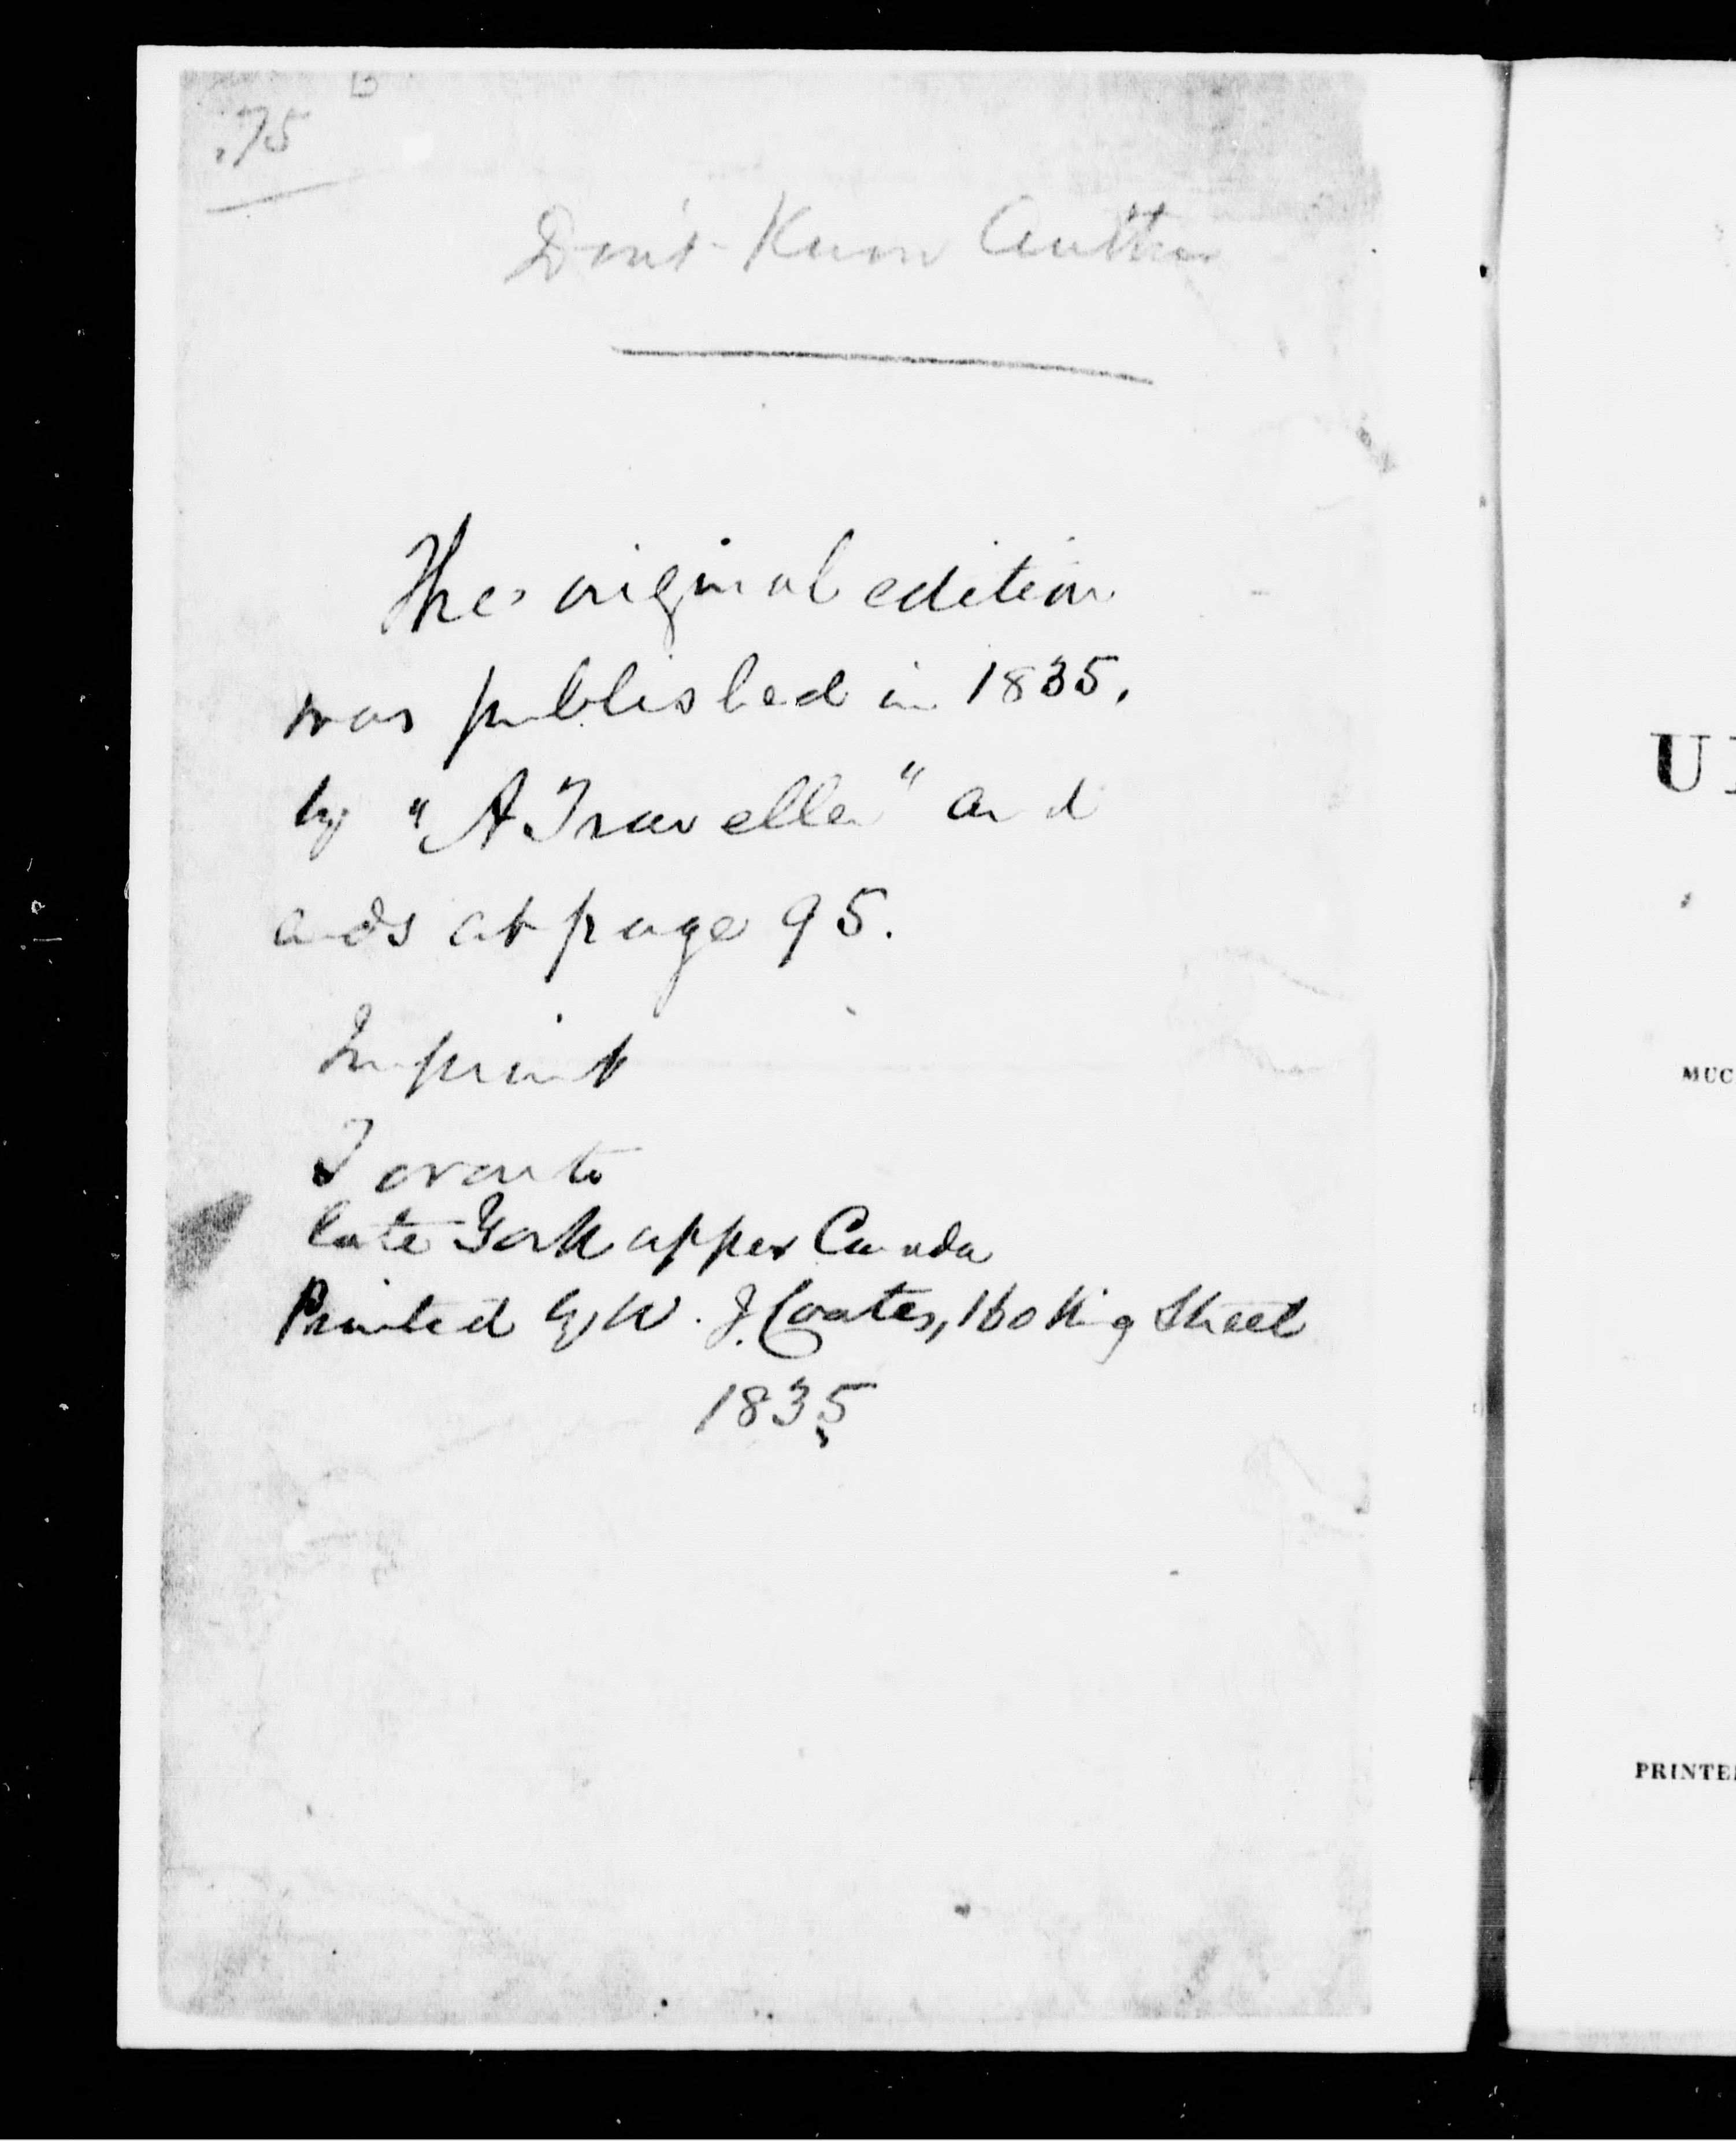 .75
Don't Know Author
The original edition
was published in 1835.
by "A Traveller" and
ends at page 95.
Imprint
Toronto
late York upper Canada
Printed by W. J. Coates, 160 King Street
1835
U
MUC
PRINTE